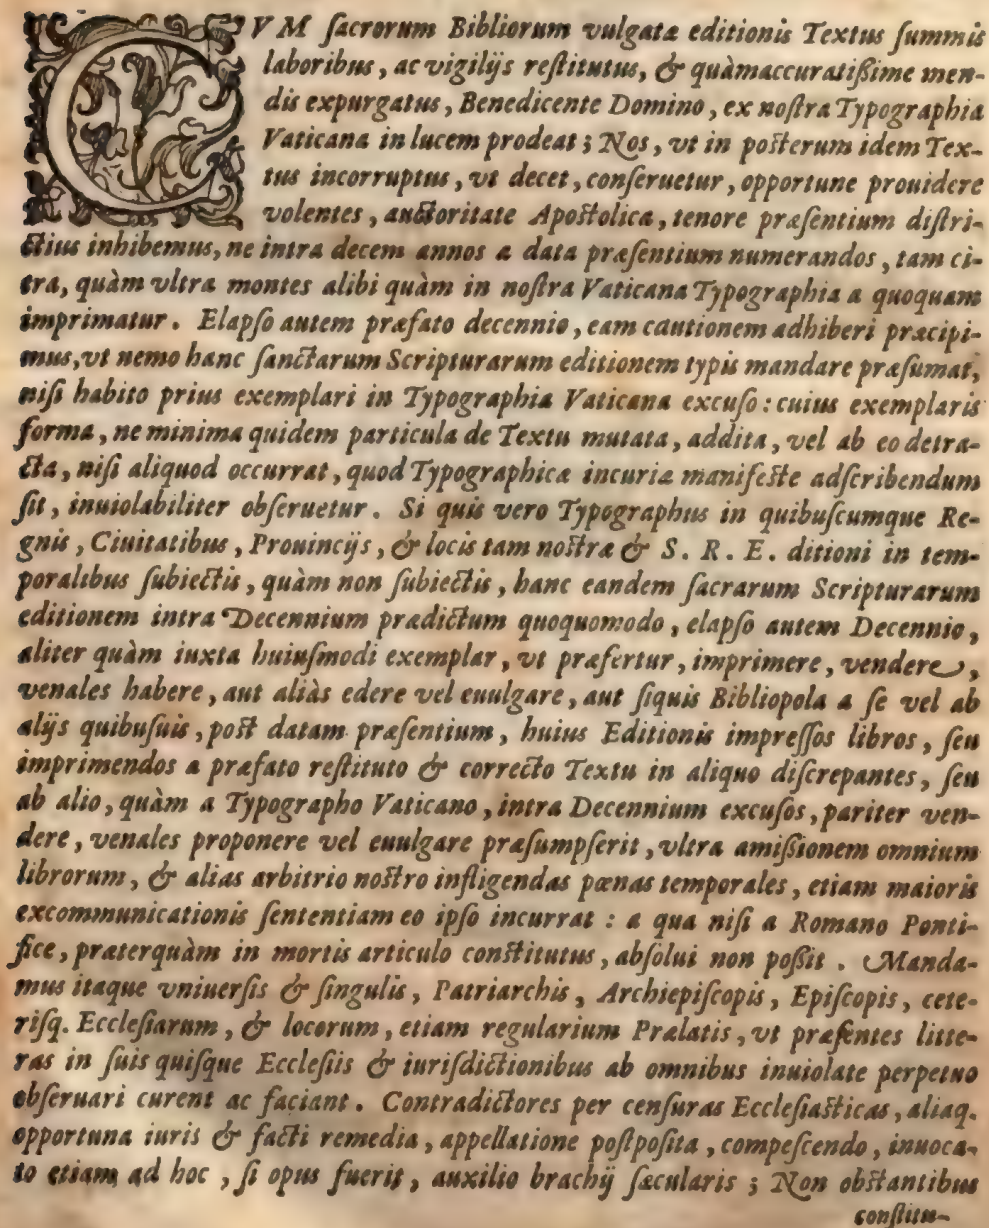 CVM ſacrorum Bibliorum vulgatæ editionis Textus ſummis
laboribus, ac vigilijs reſtitutus, & quàmaccuratiſsime men-
dis expurgatus, Benedicente Domino, ex noſtra Typographia
Vaticana in lucem prodeat; Nos, vt in poſterum idem Tex-
tus incorruptus, vt decet, conſeruetur, opportune prouidere
volentes, auctoritate Apoſtolica, tenore præſentium diſtri-
ctius inhibemus, ne intra decem annos a data præſentium numerandos, tam ci-
tra, quàm vltra montes alibi quàm in noſtra Vaticana Typographia a quoquam
imprimatur. Elapſo autem præfato decennio, eam cautionem adhiberi præcipi-
mus, vt nemo hanc ſanctarum Scripturarum editionem typis mandare præſumat,
niſi habito prius exemplari in Typographia Vaticana excuſo: cuius exemplaris
forma, ne minima quidem particula de Textu mutata, addita, vel ab eo detra-
cta, niſi aliquod occurrat, quod Typographicæ incuriæ manifeſte adſcribendum
ſit, inuiolabiliter obſeruetur. Si quis vero Typographus in quibuſcumque Re-
gnis, Ciuitatibus, Prouincijs, & locis tam noſtræ & S. R. E. ditioni in tem-
poralibus ſubiectis, quàm non ſubiectis, hanc eandem ſacrarum Scripturarum
editionem intra Decennium prædictum quoquomodo, elapſo autem Decennio,
aliter quàm iuxta huiuſmodi exemplar, vt præfertur, imprimere, vendere,
venales habere, aut aliàs edere vel euulgare, aut ſiquis Bibliopola a ſe vel ab
alijs quibuſuis, poſt datam præſentium, huius Editionis impreſſos libros, ſeu
imprimendos a præfato reſtituto & correcto Textu in aliquo diſcrepantes, ſeu
ab alio, quàm a Typographo Vaticano, intra Decennium excuſos, pariter ven-
dere, venales proponere vel euulgare præſumpſerit, vltra amiſsionem omnium
librorum, & alias arbitrio noſtro infligendas pœnas temporales, etiam maioris
excommunicationis ſententiam eo ipſo incurrat: a qua niſi a Romano Ponti-
fice, præterquàm in mortis articulo conſtitutus, abſolui non poſsit. Manda-
mus itaque vniuerſis & ſingulis, Patriarchis, Archiepiſcopis, Epiſcopis, cete-
riſq. Eccleſiarum, & locorum, etiam regularium Prælatis, vt præſentes litte-
ras in ſuis quiſque Eccleſiis & iuriſdictionibus ab omnibus inuiolate perpetuo
obſeruari curent ac faciant. Contradictores per cenſuras Eccleſiaſticas, aliaq.
opportuna iuris & facti remedia, appellatione poſtpoſita, compeſcendo, inuoca-
to etiam ad hoc, ſi opus fuerit, auxilio brachij ſæcularis; Non obſtantibus
conſtitu-